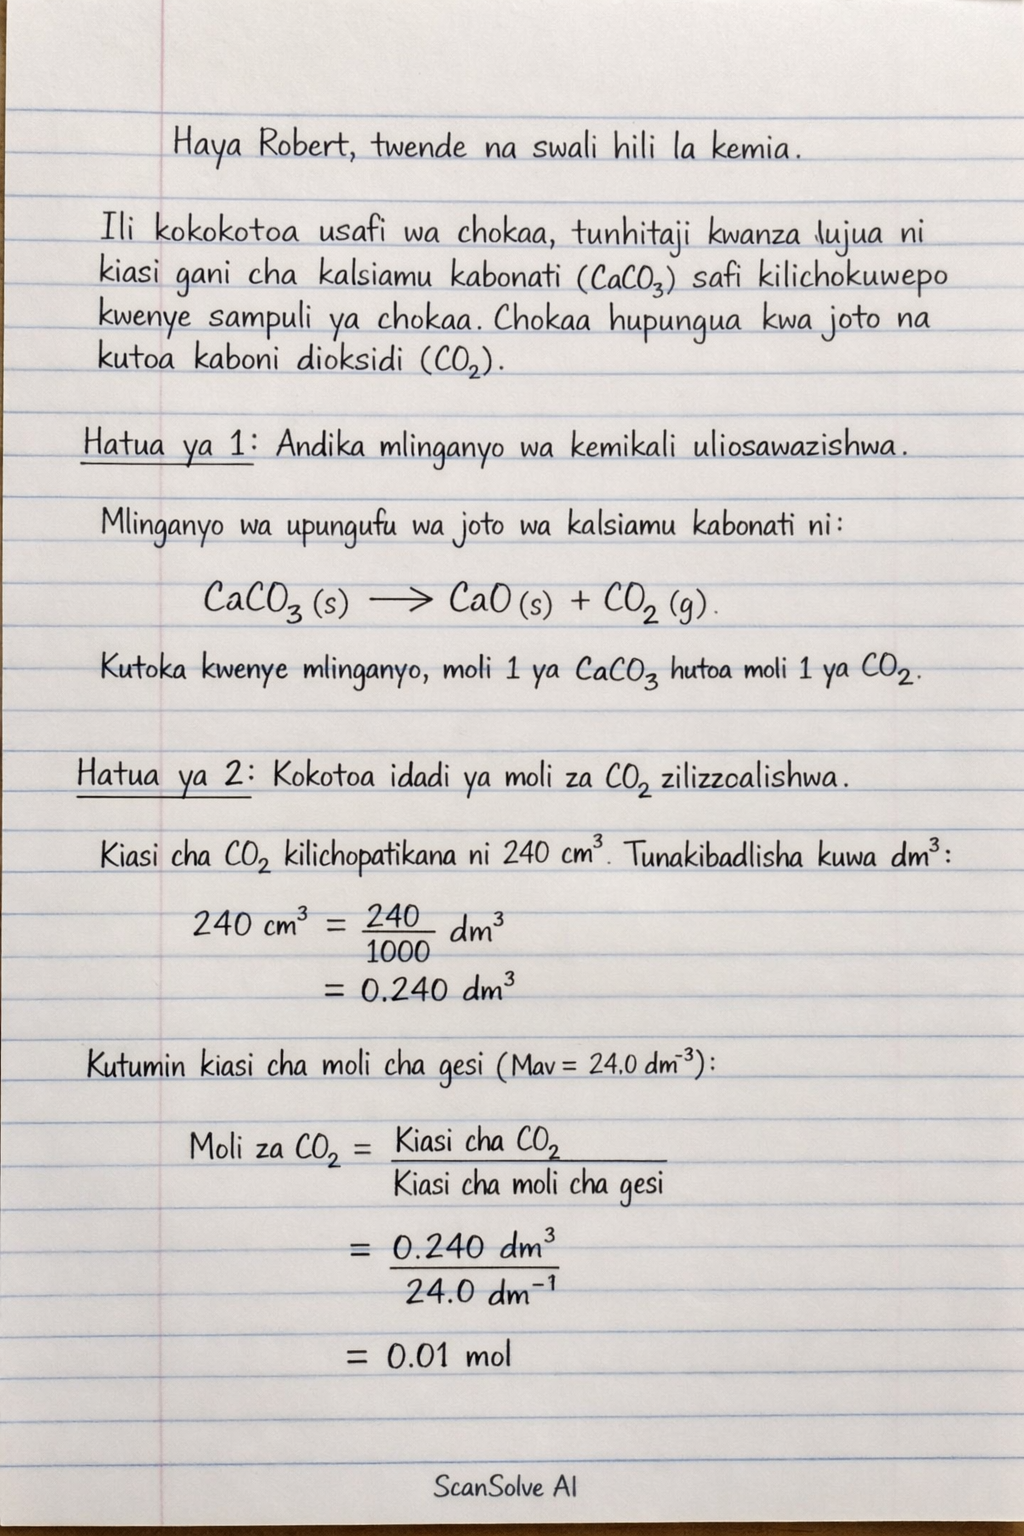 Haya Robert, twende na swali hili la kemia.
Ili kokokotoa usafi wa chokaa, tunhitaji kwanza lujua ni
kiasi gani cha kalsiamu kabonati (CaCO₃) safi kilichokuwepo
kwenye sampuli ya chokaa. Chokaa hupungua kwa joto na
kutoa kaboni dioksidi (CO₂).
Hatua ya 1: Andika mlinganyo wa kemikali uliosawazishwa.
Mlinganyo wa upungufu wa joto wa kalsiamu kabonati ni:
CaCO₃ (s) ⟶ CaO (s) + CO₂ (g).
Kutoka kwenye mlinganyo, moli 1 ya CaCO₃ hutoa moli 1 ya CO₂.
Hatua ya 2: Kokotoa idadi ya moli za CO₂ zilizzcalishwa.
Kiasi cha CO₂ kilichopatikana ni 240 cm³. Tunakibadlisha kuwa dm³:
240 cm³ = 240/1000 dm³
= 0.240 dm³
Kutumin kiasi cha moli cha gesi (Mav = 24.0 dm⁻³):
Moli za CO₂ = Kiasi cha CO₂ / Kiasi cha moli cha gesi
= 0.240 dm³ / 24.0 dm⁻¹
= 0.01 mol
ScanSolve AI